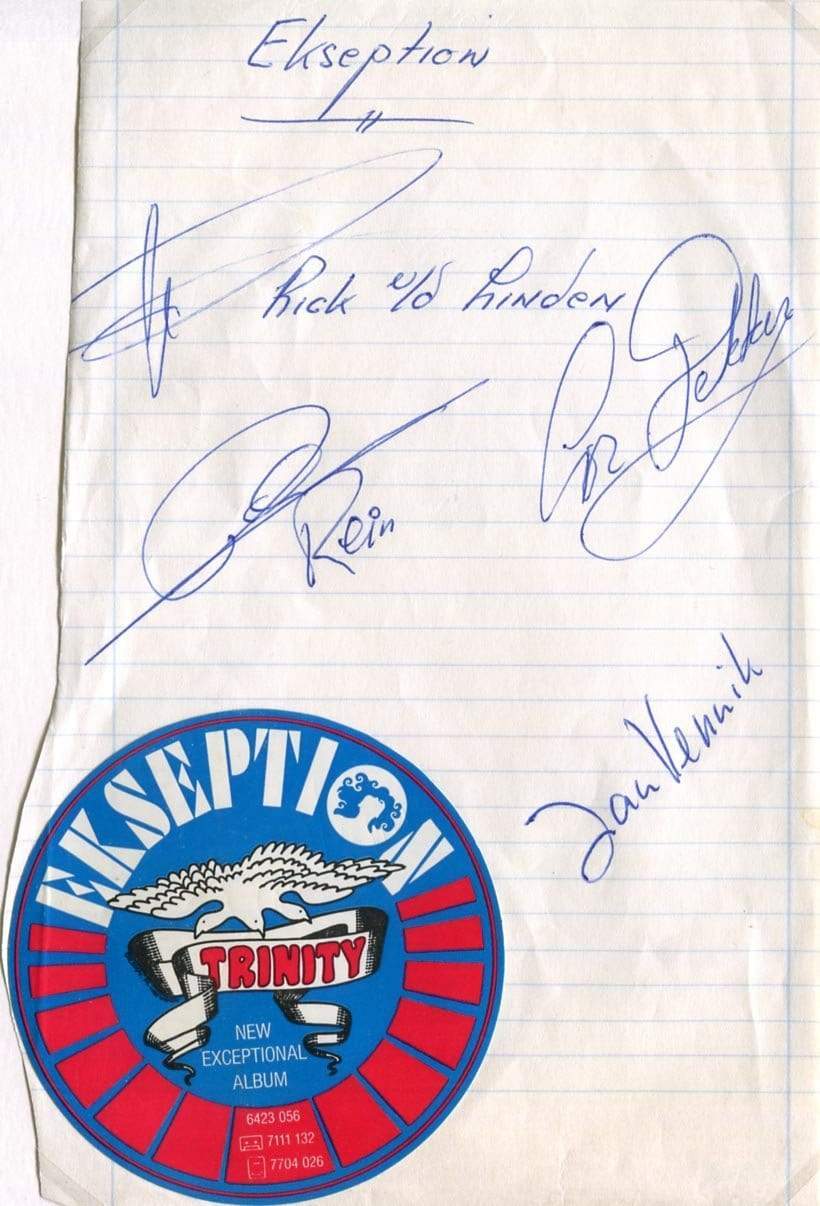 Ekseption
Rick v/d Linden
Cor Dekker
Rein
Jan Vennik
EKSEPTION
TRINITY
NEW
EXCEPTIONAL
ALBUM
6423 056
7111 132
7704 026